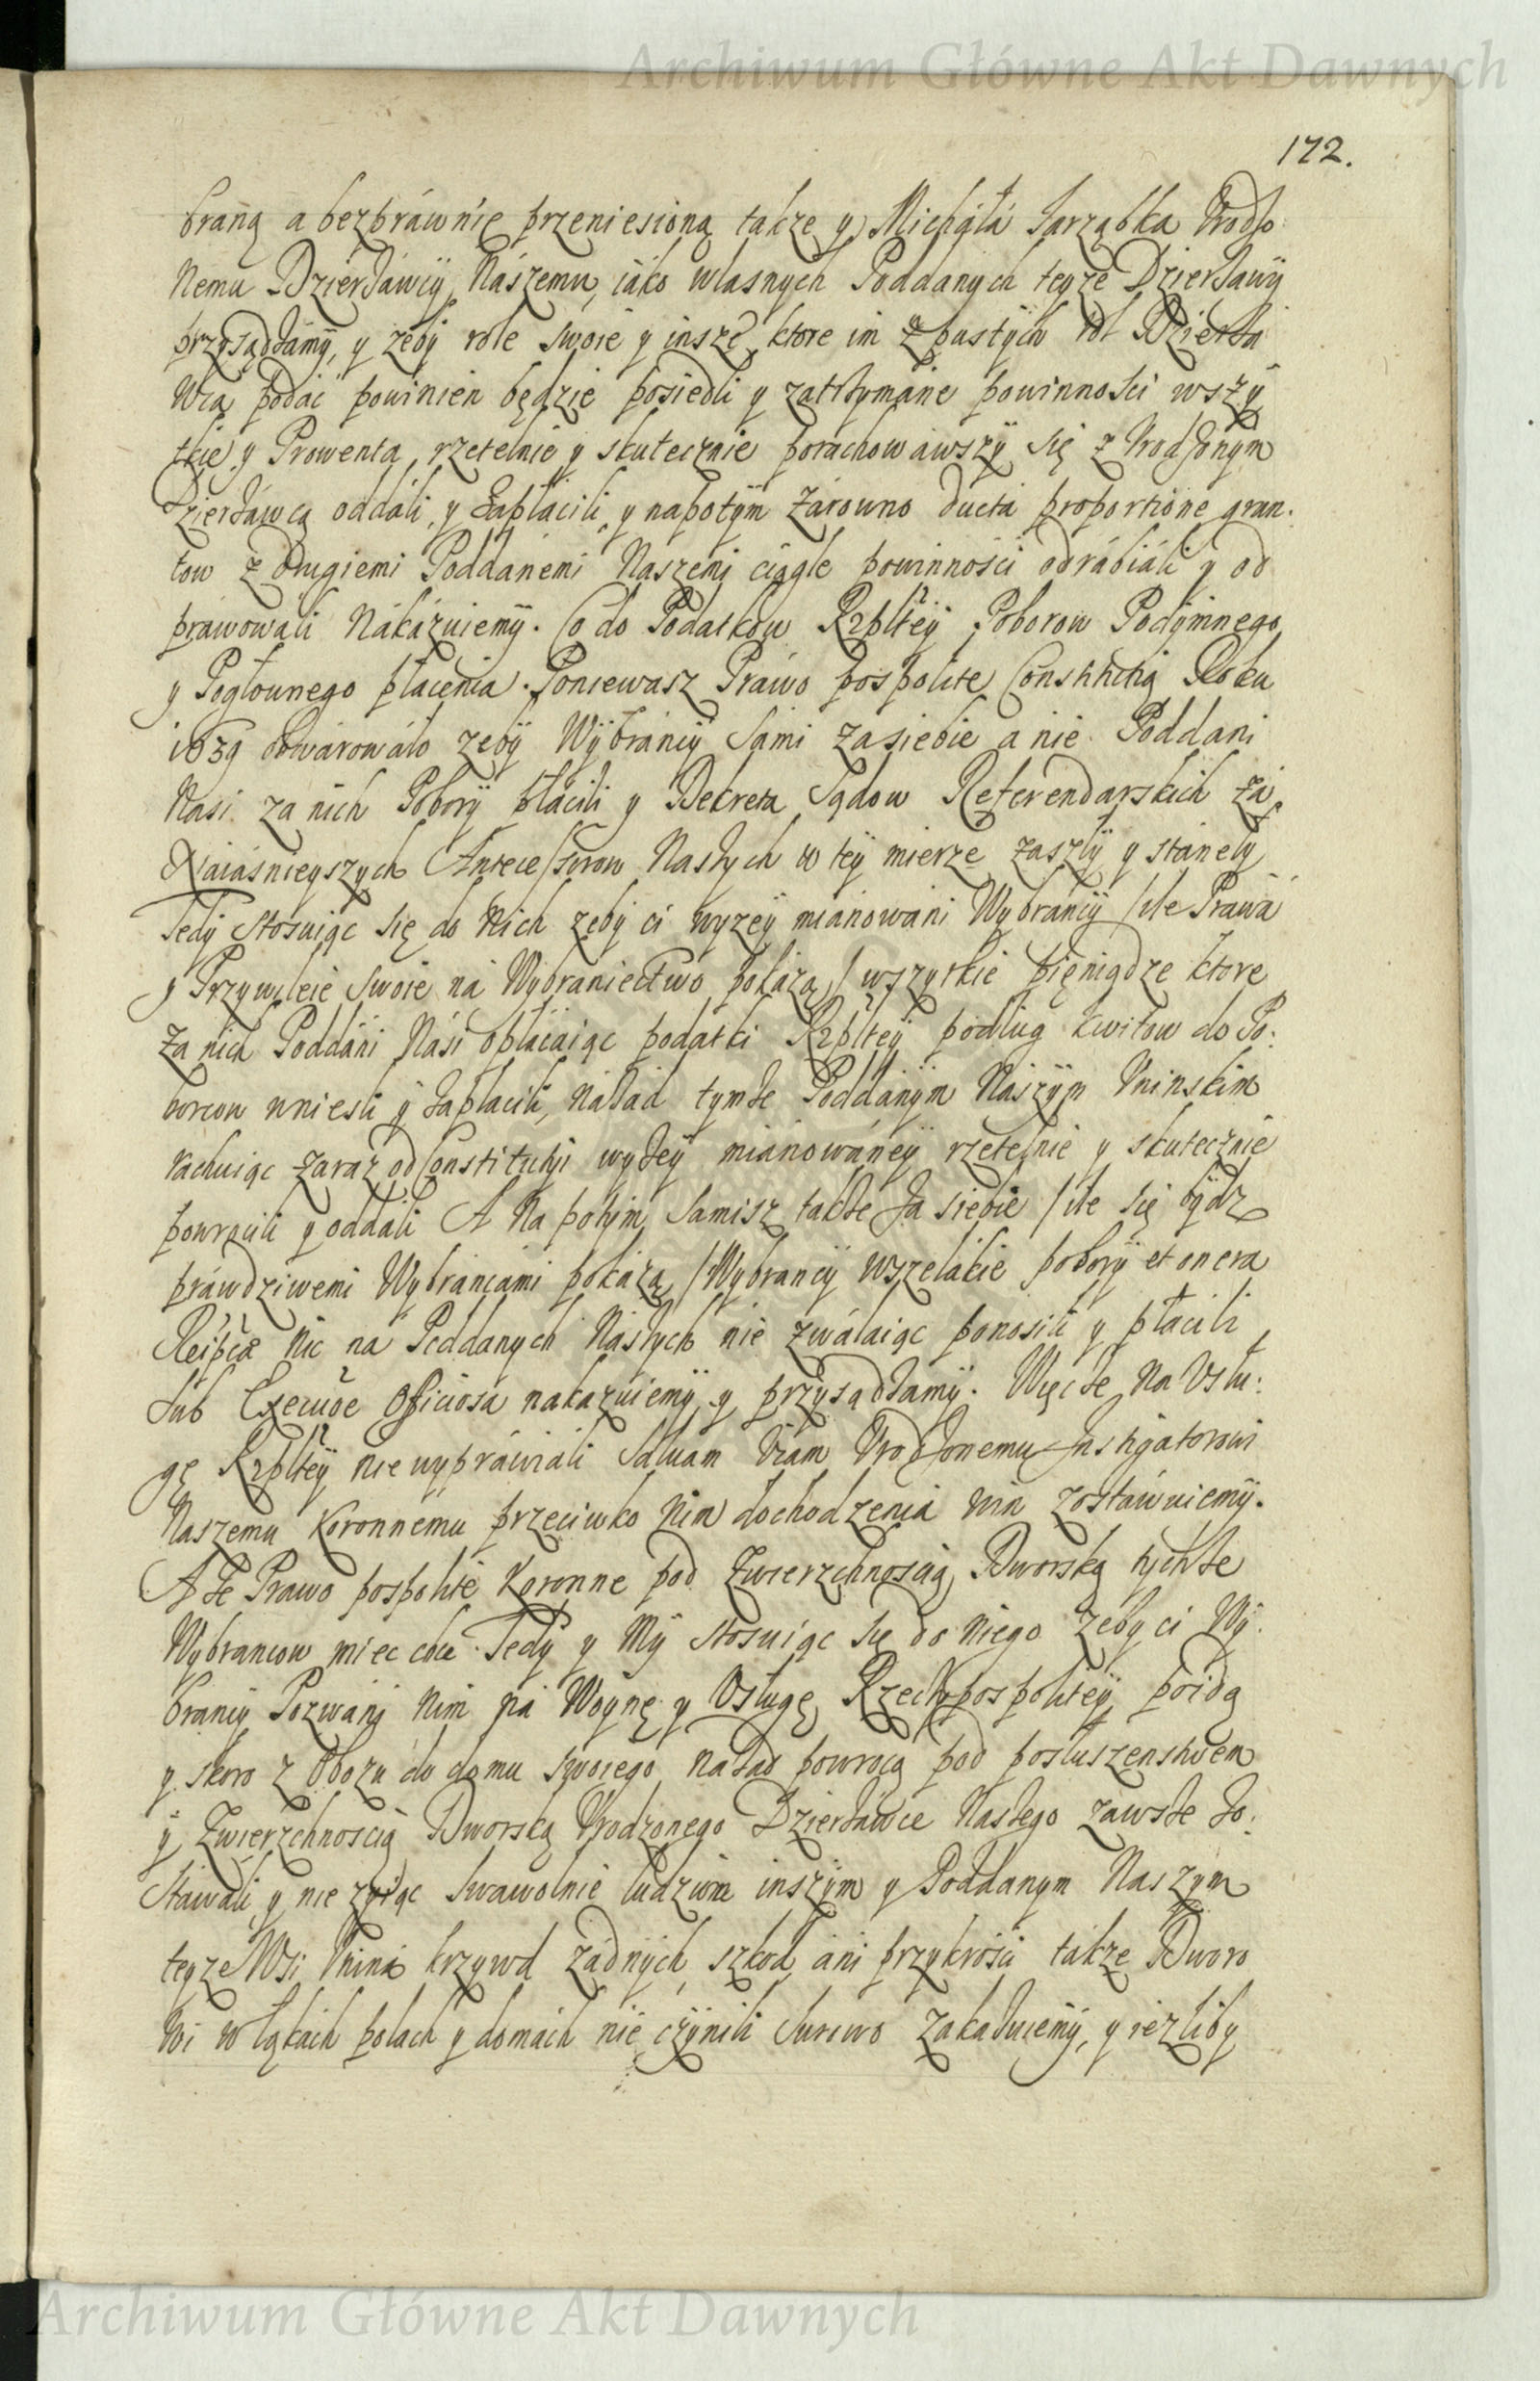 Archiwum Główne Akt Dawnych
172.
braną a bezprawnie przeniesioną takze y Michała Jarząbka Urodzo
nemu Dzierżawcy Naszemu, iáko własnych Poddanych teyze Dzierżawy
przysądzamy, y zeby role swoie y insze ktore im z pustych rol Dzierża
wca podać powinien będzie posiedli y zatrzymane powinnosci wszy
tkie y Prowenta, rzetelnie y skutecznie porachowawszy się z Urodzonym
Dzierżawcą oddali, y zapłacili, y napotym zarowno ducta proportione grun:
tow z drugiemi Poddanemi Naszemi ciągle powinności odrabiali y od
prawowali nákázuiemy. Co do Podatkow Rzpltey Poborow Podymnego
y Pogłownego płacenia. Poniewasz Práwo pospolite Constitutią Roku
1659 obwarowáło zeby Wybráncy sami za siebie a nie Poddani
Nasi za nich Pobory płácili y Dekreta Sądow Referendarskich zá
Naiásnieyszych Antecessorow Naszych w tey mierze zaszły y staneły
Tedy stosuiąc się do nich zeby ci wyzey mianowani Wybrancy /ile Prawá
y Przywileie swoie ná Wybraniectwo pokażą/ wszytkie pięniądze ktore
za nich Poddáni Nási opłacáiąc podatki Rzpltey podług kwitow do Po:
borcow wniesli y zapłacili, nazad tymże Poddanym Naszym Uninskim
rachuiąc zaraz od Constitutyi wyżey mianowáney rzetelnie y skutecznie
powrocili y oddali A na potym samisz także za siebie /ile się bydz
práwdziwemi Wybrancami pokażą/ Wybrancy wszelákie pobory et onera
Reipcæ nic na Poddanych Naszych nie zwálaiąc ponosili y płacili,
sub Executione officiosa nakazuiemy y przysądzamy. Więc że na Usłu:
gę Rzpltey nie wypráwiali salvam viam Urodzonemu Instigatorowi
Naszemu Koronnemu przeciwko nim dochodzenia win zostawuiemy.
A że Prawo pospolite Koronne pod Zwierzchnoscią Dworską tychże
Wybrancow miec chce. Tedy y My stosuiąc się do niego zeby ci Wy:
brancy Pozwani nim na Woynę y Usługę Rzeczypospolitey poidą
y skoro z Obozu do domu swoiego nazad powrocą pod posłuszenstwem
y Zwierzchnoscią Dworską Urodzonego Dzierżawce Naszego zawsze zo:
stawali, y nie zyiąc swawolnie ludziom inszym y Poddanym Naszym
teyze Wsi krzywd żadnych, szkod ani przykrosci takze Dworo
wi w łąkach polach y domach nie czynili surowo zakazuiemy, y iezliby
Archiwum Główne Akt Dawnych